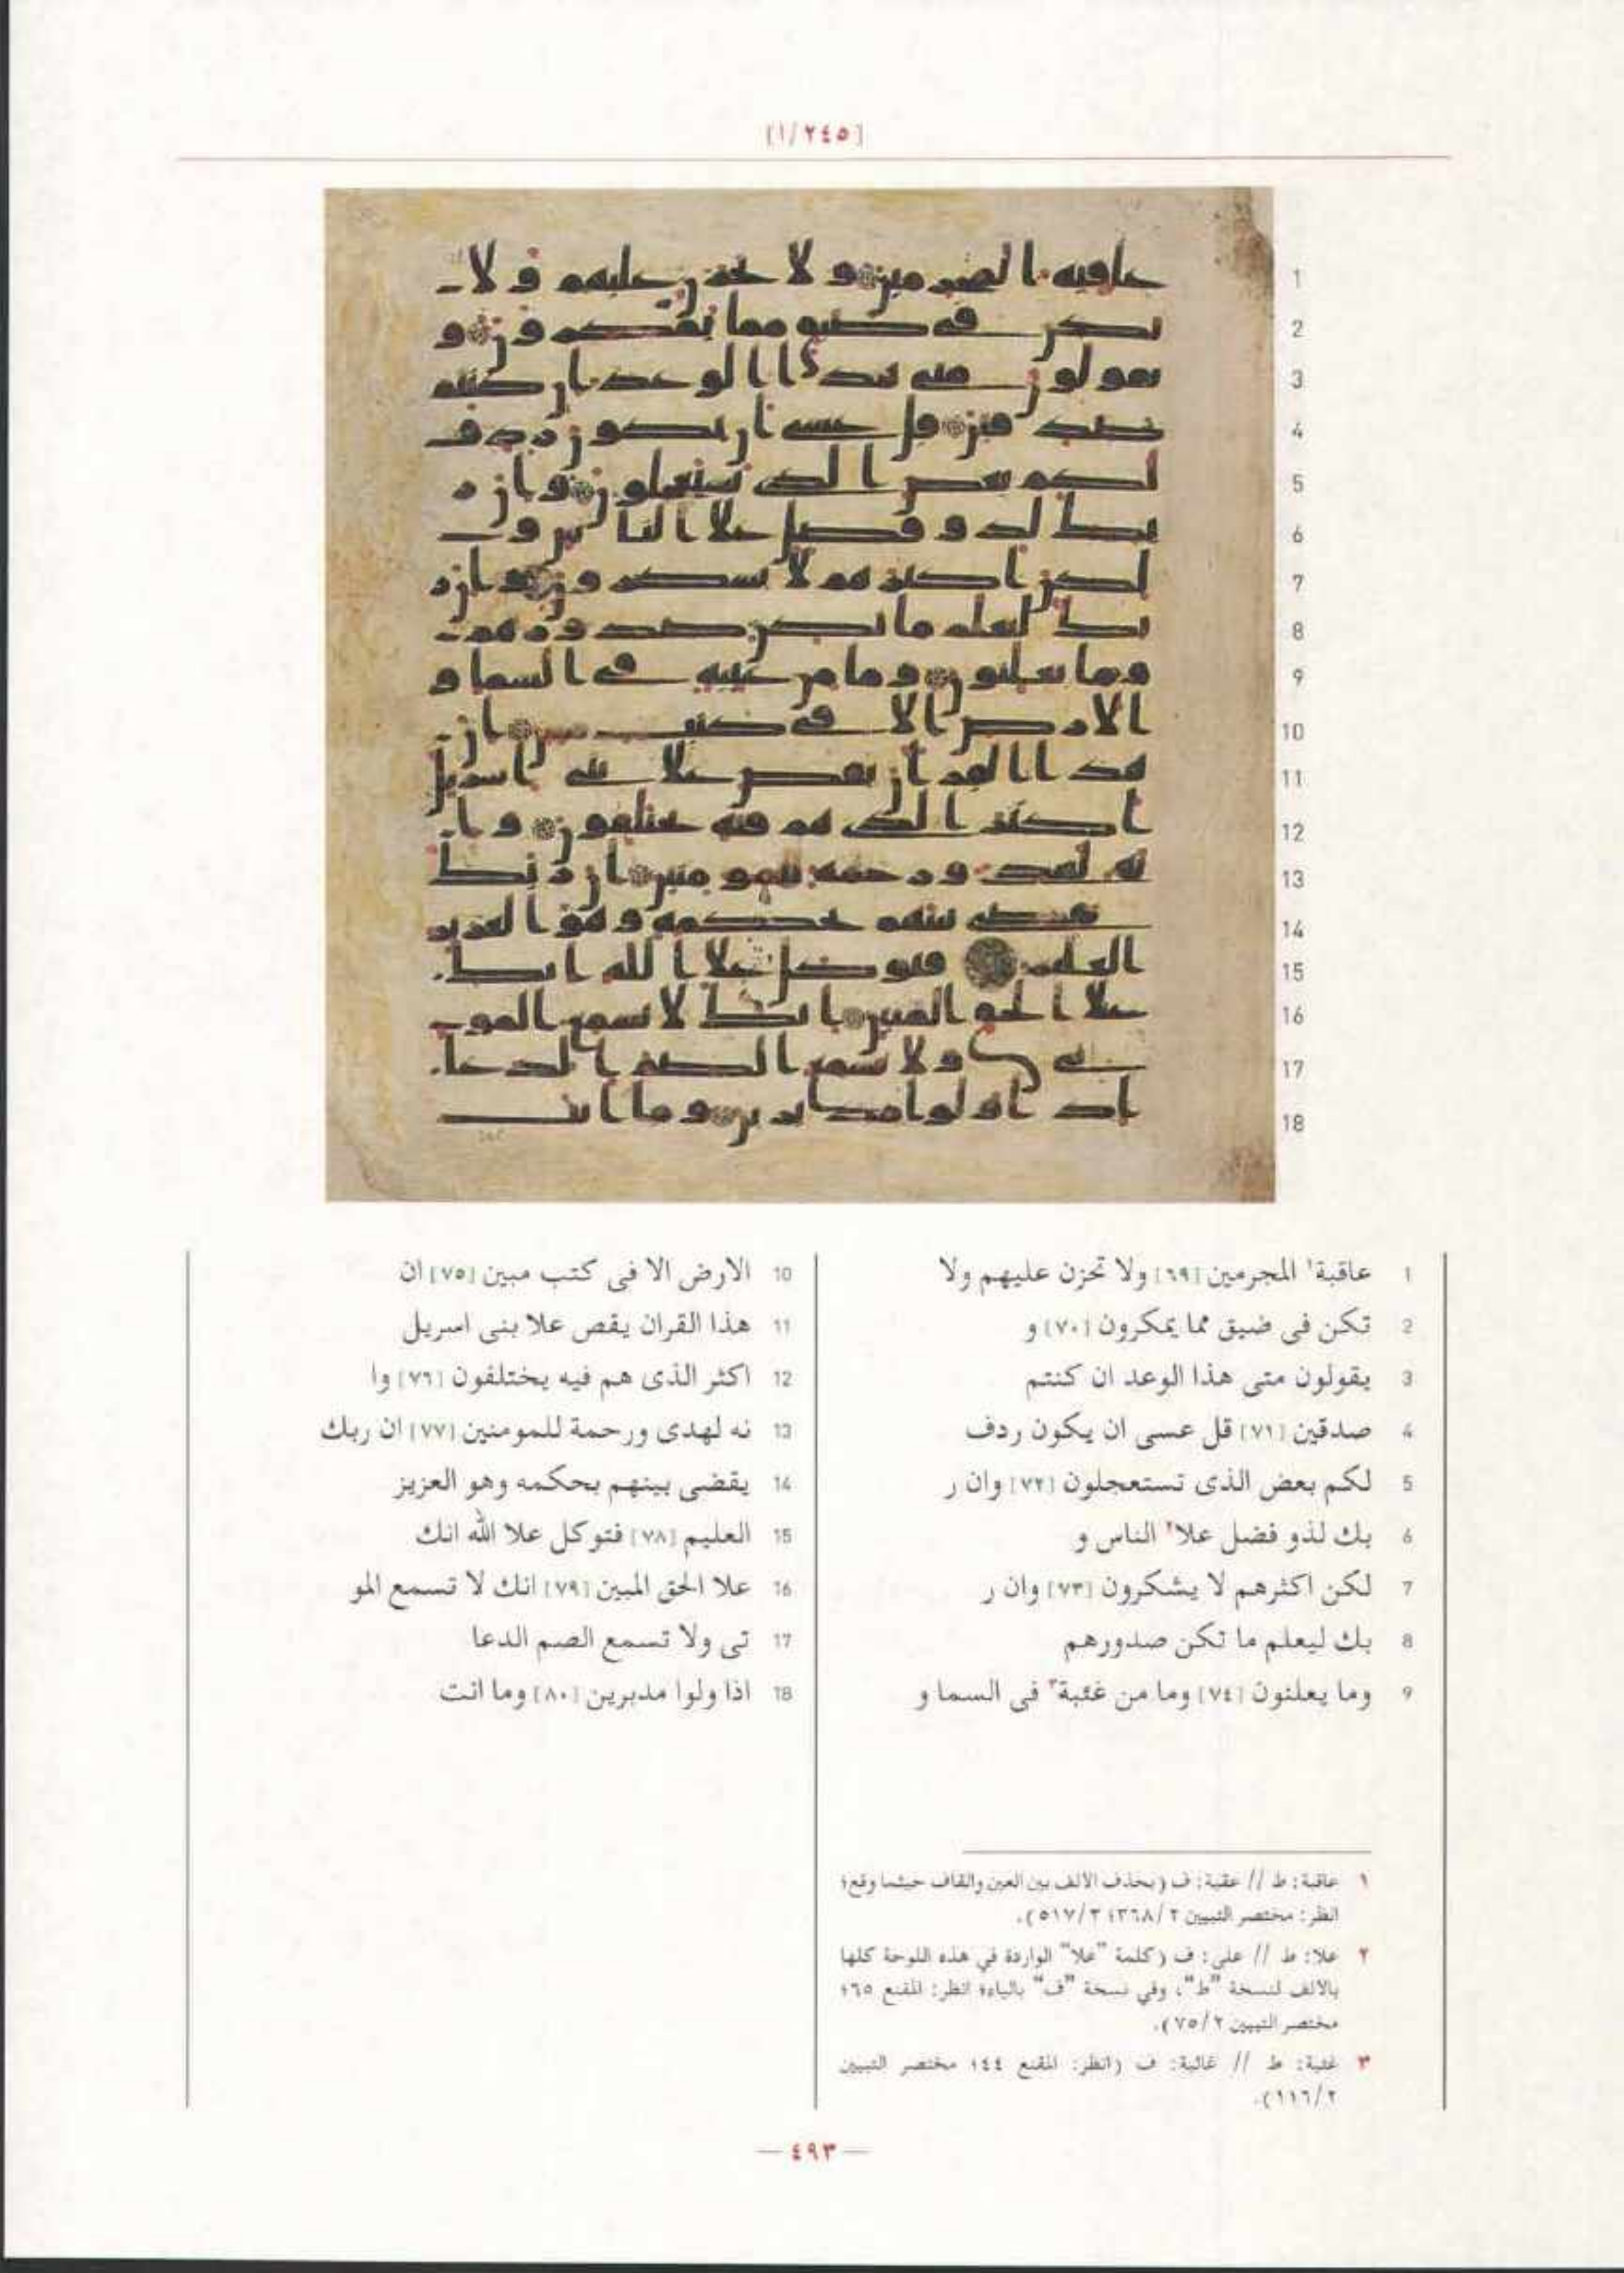 [٢٤٥/١]
1 عاقبة¹ المجرمين [٦٩] ولا تحزن عليهم ولا
2 تكن فى ضيق مما يمكرون [٧٠] و
3 يقولون متى هذا الوعد ان كنتم
4 صدقين [٧١] قل عسى ان يكون ردف
5 لكم بعض الذى تستعجلون [٧٢] وان ر
6 بك لذو فضل علا² الناس و
7 لكن اكثرهم لا يشكرون [٧٣] وان ر
8 بك ليعلم ما تكن صدورهم
9 وما يعلنون [٧٤] وما من غئبة³ فى السما و
10 الارض الا فى كتب مبين [٧٥] ان
11 هذا القران يقص علا بنى اسريل
12 اكثر الذى هم فيه يختلفون [٧٦] وا
13 نه لهدى ورحمة للمومنين [٧٧] ان ربك
14 يقضى بينهم بحكمه وهو العزيز
15 العليم [٧٨] فتوكل علا الله انك
16 علا الحق المبين [٧٩] انك لا تسمع المو
17 تى ولا تسمع الصم الدعا
18 اذا ولوا مدبرين [٨٠] وما انت
١ عاقبة: ط // عقبة: ف (بحذف الالف بين العين والقاف حيثما وقع؛
انظر: مختصر التبيين ٣٦٨/٢؛ ٥١٧/٣).
٢ علا: ط // على: ف (كلمة "علا" الواردة في هذه اللوحة كلها
بالالف لنسخة "ط"، وفي نسخة "ف" بالياء؛ انظر: المقنع ٦٥؛
مختصر التبيين ٧٥/٢).
٣ غئبة: ط // غائبة: ف (انظر: المقنع ٤٤؛ مختصر التبيين
١١٦/٢).
— ٤٩٣ —